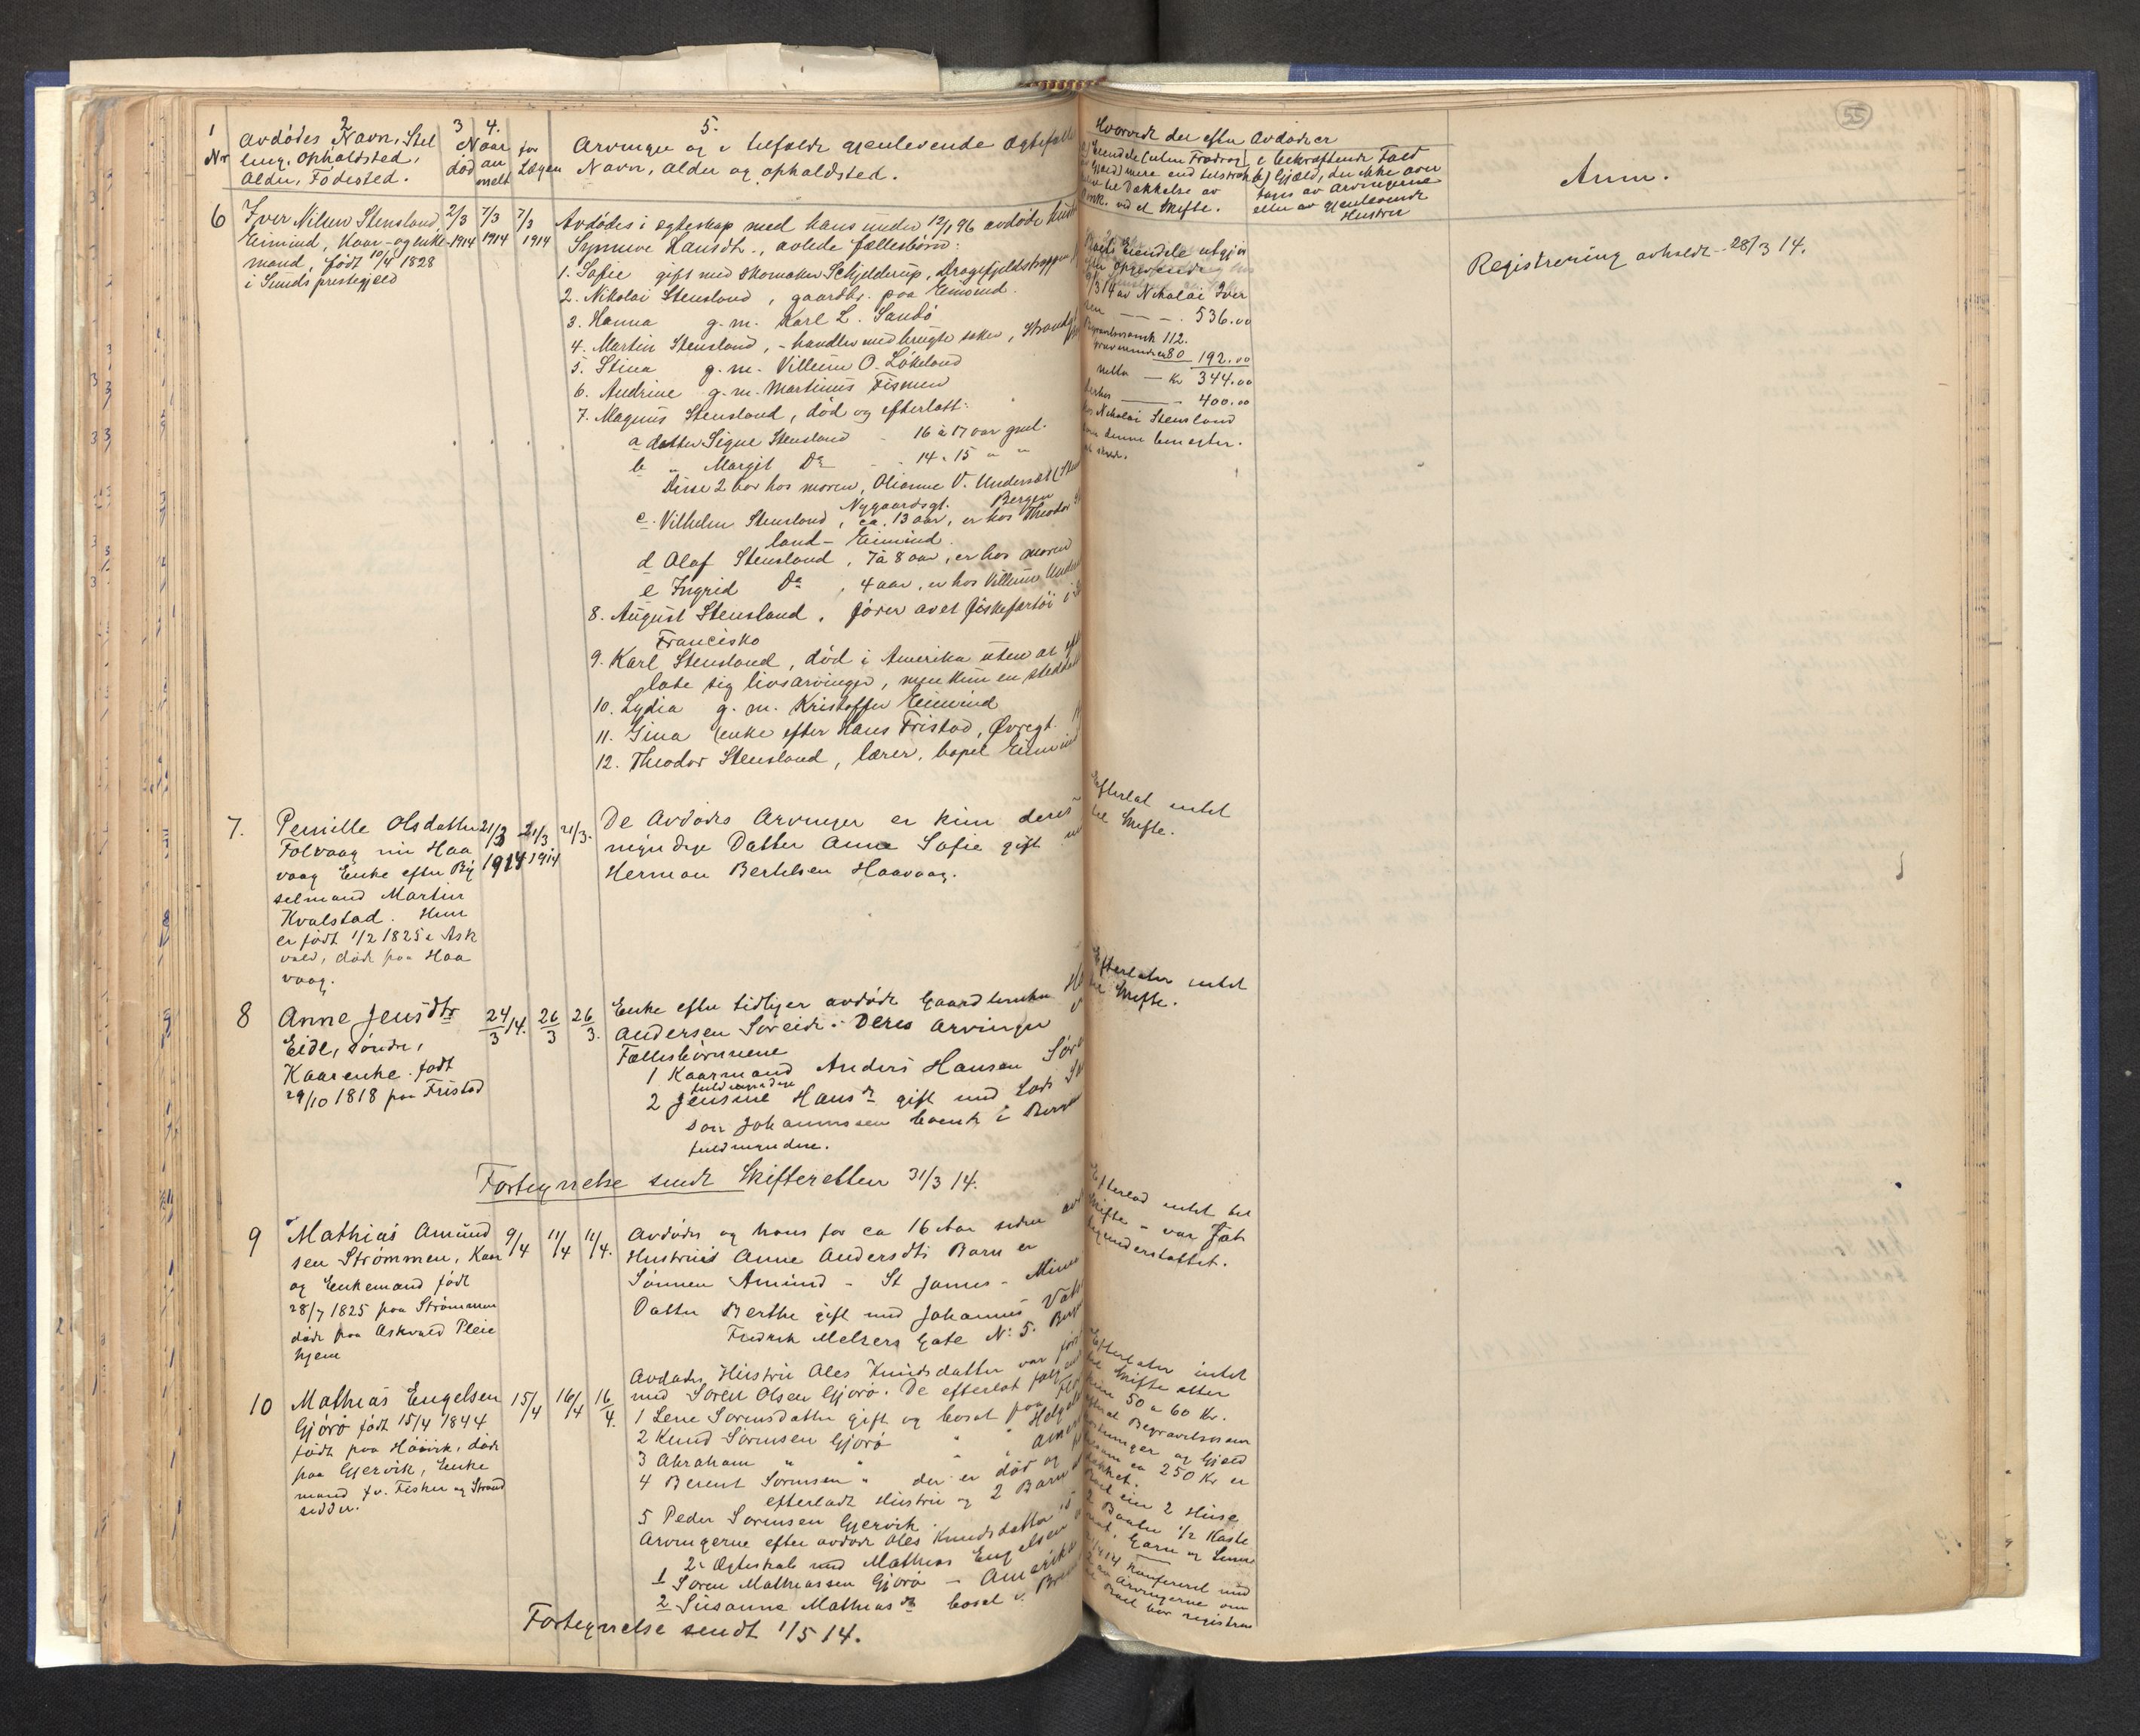 55
1 2 3 4. 5.
Nr Avdødes Navn, Stel
ling, Opholdsted,
Alder, Fødested.
Naar
død an
melt
for
Lægen
Arvinger og i tilfælde gjenlevende Ægtefælle
Navn, Alder og Opholdsted.
Hvorvidt der efter Avdøde er
a) Eiendele (uten Fradrag
Gjæld) mere end tilstræk
til Dækkelse av
omk. ved et Skifte.
i bekræftende Fald
b) Gjæld, der ikke over
tages av Arvingerne
eller av gjenlevende
Hustru
Anm.
6 Iver Nilsen Stensland,
Eimind, Kaar- og enke-
mand, født 10/4 1828
i Sunds prestegjeld
2/3 1914
7/3 1914
7/3 1914
Avdødes i egteskap med hans under 12/1 96 avdøde hust
Synneve Hansdtr., avlede fællesbørn:
1. Sofie gift med skomaker Schjelderup, Dragefjeldstrappen
2. Nikolai Stensland, gaardbr. paa Eimind.
3. Hanna g. m. Karl L. Sandø
4. Martin Stensland, - handler med brugte saker, Strandg
5. Stina g. m. Villum O. Løkeland
6. Andrine g. m. Martinus Tismen
7. Magnus Stensland, død og efterlatt:
a datter Signe Stensland 16 à 17 aar gml.
b " Margit Do 14 à 15 " "
Disse 2 bor hos moren, Olianne V. Undersæt (
Nygaardsgt. Bergen
c. Vilhelm Stensland, ca. 13 aar, er hos Theodor
land - Eimind.
d Olaf Stensland, 7 à 8 aar, er hos moren
e Ingrid Do, 4 aar, er hos Villum
8. August Stensland, fører av et fiskefartøi i
Francisko
9. Karl Stensland, død i Amerika uten at
late sig livsarvinger, men kun en
10. Lydia g. m. Kristoffer Eimind
11. Gina enke efter Hans Fristad, Øvregt.
12. Theodor Stensland, lærer, bopel Eimind
Eiendele utgjør
efter opgivende
9/3 14 av Nikolai Iver
sen - - - 536.00
112.
80 192.00
netto - Kr 344.00
400.00
hos Nikolai Stensland
denne benegter.
Registrering avholdt 28/3 14.
7. Pernille Olsdatter
Folvaag nu Haa
vaag Enke efter Byg
selmand Martin
Kvalstad. Hun
er født 1/2 1825 i Ask
vold, døde paa Haa
vaag.
21/3 1914
21/3 1914
21/3.
De Avdødes Arvinger er kun deres
myndige Datter Anne Sofie gift
Herman Bertelsen Haavaag.
Efterlat intet
til Skifte.
8 Anne Jensdtr
Eide, søndre,
Kaarenke. født
29/10 1818 paa Fristad
24/3 14.
26/3
26/3.
Enke efter tidligere avdøde Gaardbruker
Andersen Søreide. Deres Arvinger
Fællesbørnene
1 Kaarmand Anders Hansen
fuldmyndige
2 Jensine Hansdr gift med Lods
son Johannessen boende i
fuldmyndige.
Efterlater intet
til Skifte.
Fortegnelse sendt Skifteretten 31/3 14.
9 Mathias Amund
sen Strømmen, Kaar
og Enkemand født
28/7 1825 paa Strømmen
døde paa Askvold Pleie
hjem
9/4
11/4
11/4.
Avdødes og hans for ca 16 Aar siden
Hustrues Anne Andersdtrs Barn er
Sønnen Amund - St James -
Datter Berthe gift med Johannes
Fredrik Meltzers Gate No 5.
Efterlod intet til
Skifte - var Fat
tigunderstøttet.
10 Mathias Engelsen
Gjørø født 15/4 1844
født paa Høivik, døde
paa Gjervik, Enke
mand fv. Fisker og Strand
sidder.
15/4
16/4
16/4.
Avdødes Hustru Ales Knudsdatter var
med Søren Olsen Gjørø. De efterlot
1 Lene Sørensdatter gift og bosat paa
2 Knud Sørensen Gjørø
3 Abraham " "
4 Berent Sørensen " der er død og
efterladt Hustru og 2 Barn
5 Peder Sørensen Gjervik
Arvingerne efter avdøde Ales Knudsdatter
2. Ægteskab med Mathias Engelsen
1 Søren Mathiassen Gjørø - Amerika
2 Susanne Mathiasdr bosat i
Efterlater intet
til Skifte efter
50 a 60 Kr.
Begravelsesom
kostninger og Gjæld
ca 250 Kr er
dækket.
2 Huse
2 Baater 1/2 Kaste
not, Garn og
Konfereret med
Arvingerne om
registre
Fortegnelse sendt 1/5 14.